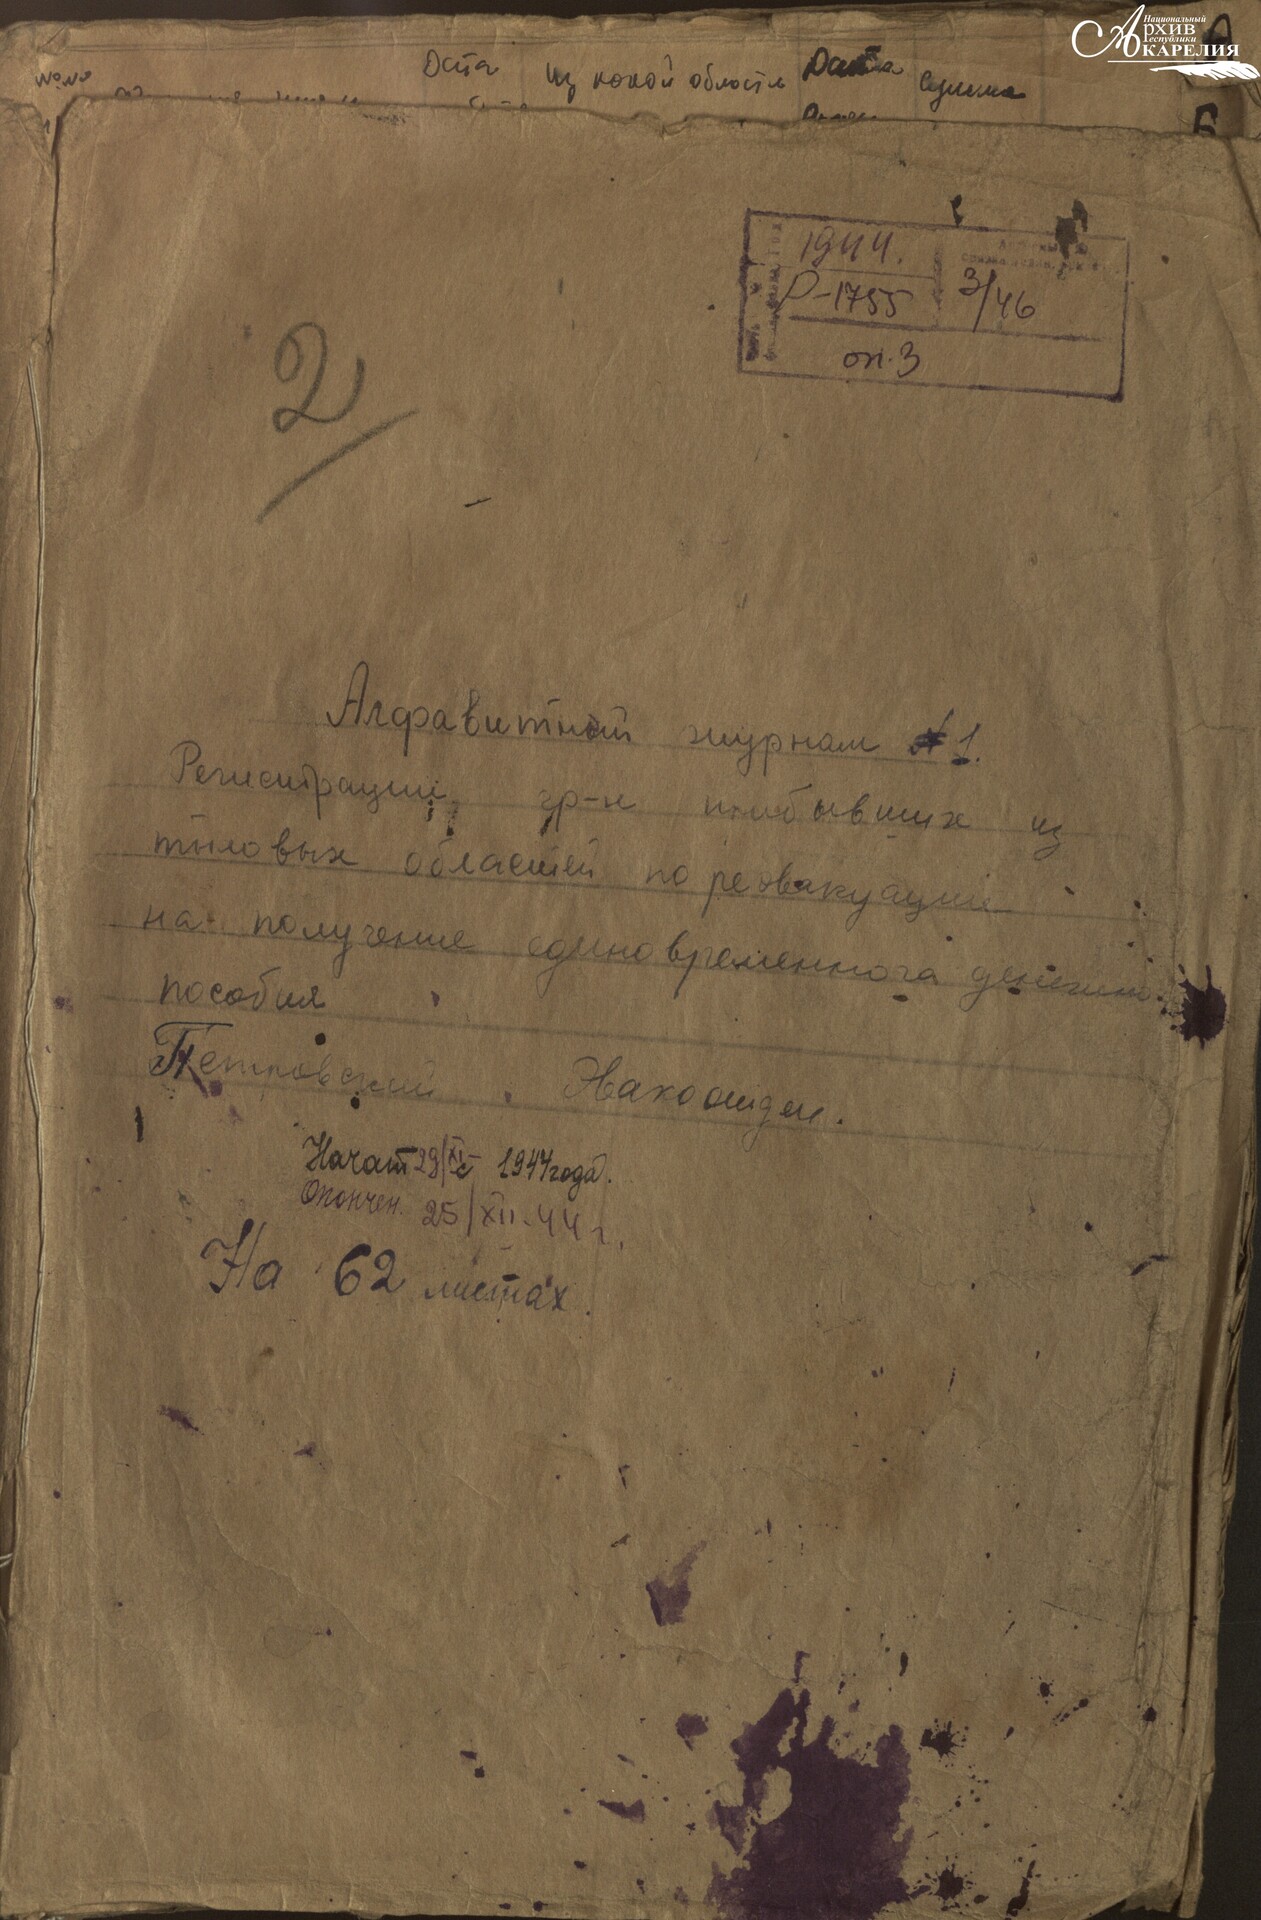 Национальный
Архив
Республики
КАРЕЛИЯ
№№ Дата из какой области Дата Сумма
А
Б
1944.
Р-1755 3/46
оп. 3
2
Алфавитный журнал №1.
Регистрации гр-н прибывших из
тыловых областей по реэвакуации
на получение единовременного денежно
пособия
Петровский
Начат 29/XI- 1944 года.
Окончен. 25/XII-44 г.
На 62 листах.